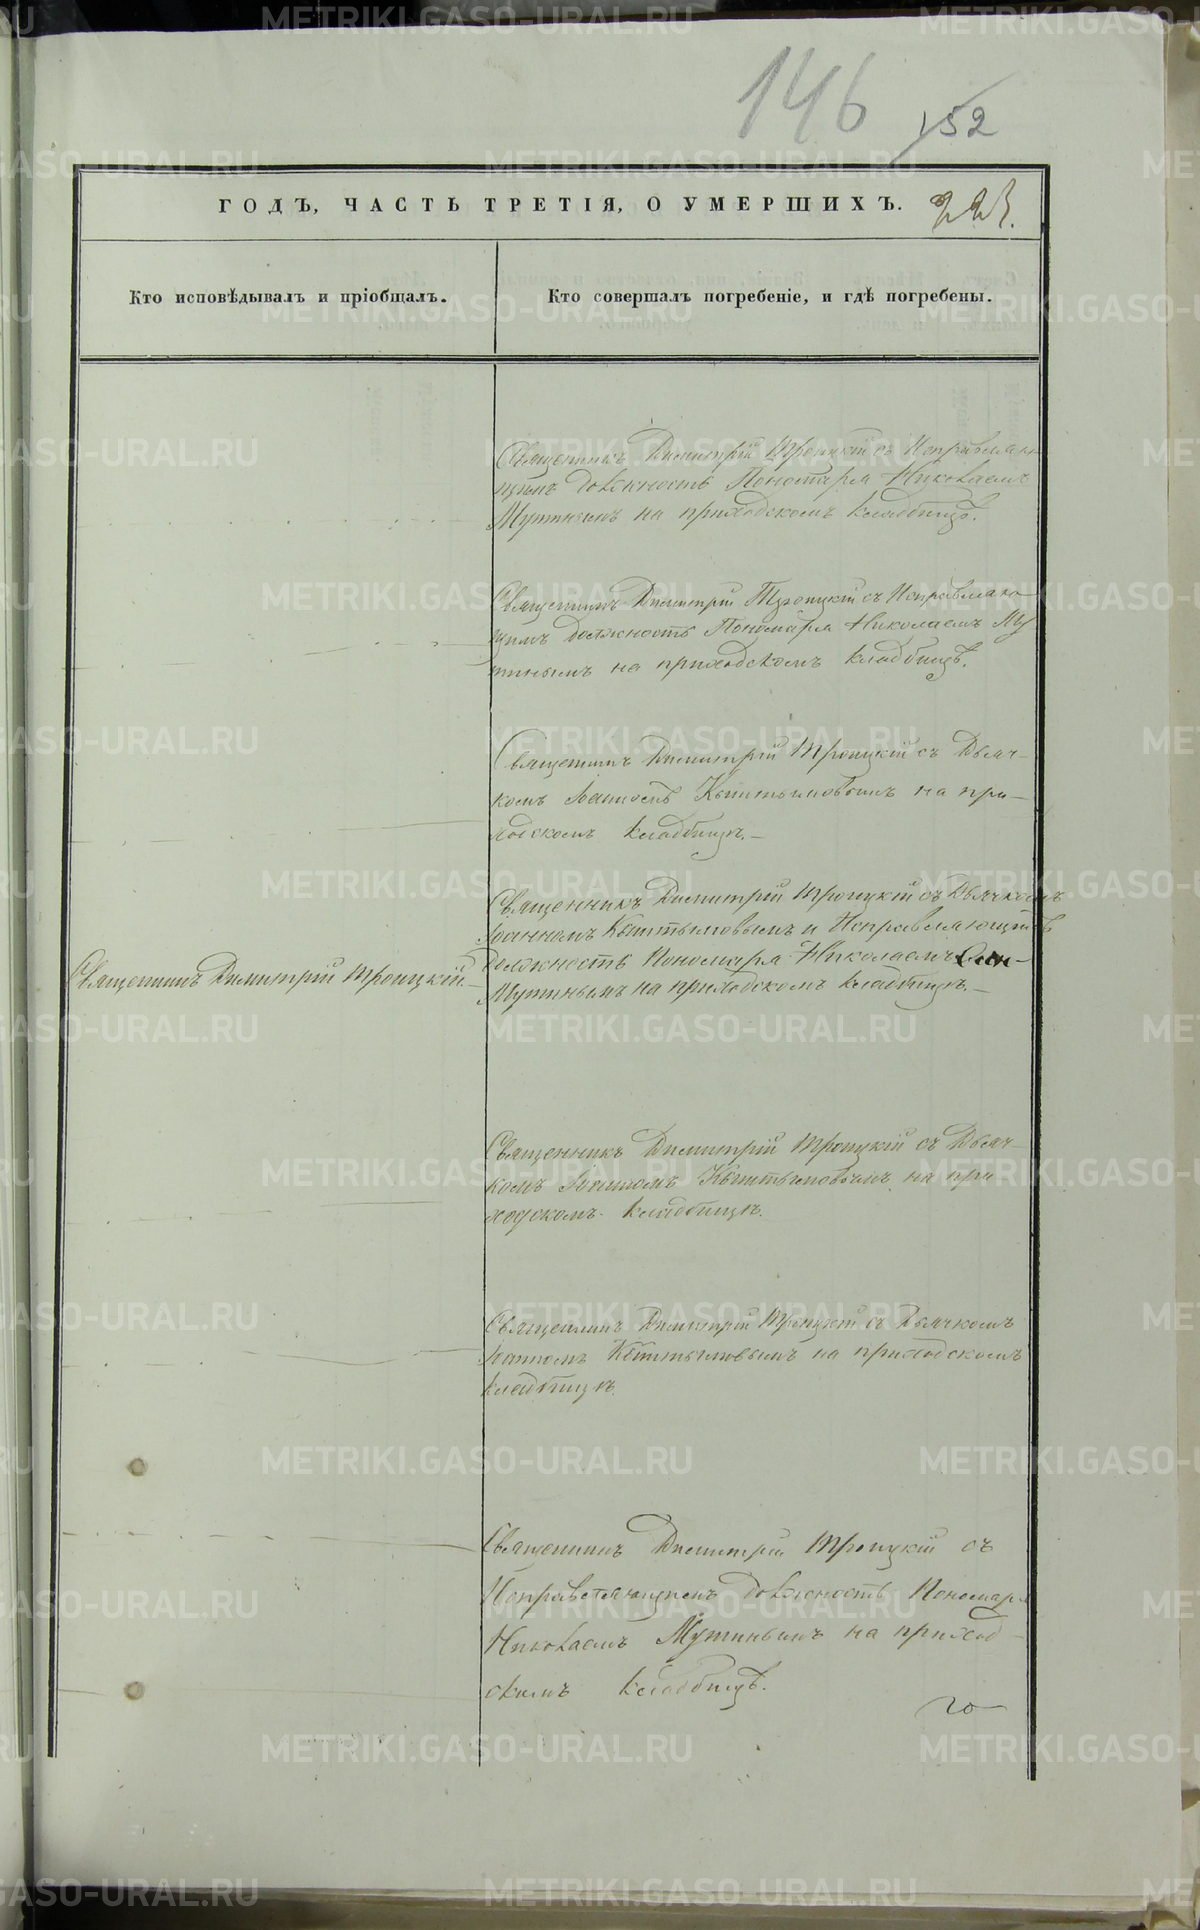 146
152
ГОДЪ, ЧАСТЬ ТРЕТІЯ, О УМЕРШИХЪ.
Кто исповѣдывалъ и пріобщалъ.
Кто совершалъ погребеніе, и гдѣ погребены.
Священникъ Димитрій Троицкій съ Исправляю
щимъ должность Пономаря Николаемъ
Мутинымъ на приходскомъ кладбищѣ.
Священникъ Димитрій Троицкій съ Исправляю
щимъ должность Пономаря Николаемъ Му
тинымъ на приходскомъ кладбищѣ.
Священникъ Димитрій Троицкій съ Дьяч-
комъ Іоанномъ Кыштымовымъ на при-
ходскомъ кладбищѣ.
Священникъ Димитрій Троицкій съ Дьячкомъ
Іоанномъ Кыштымовымъ и Исправляющимъ
должность Пономаря Николаемъ
Священникъ Димитрій Троицкій.
Мутинымъ на приходскомъ кладбищѣ.
Священникъ Димитрій Троицкій съ Дьяч-
комъ Іоанномъ Кыштымовымъ на при
ходскомъ кладбищѣ.
Священникъ Димитрій Троицкій съ Дьячкомъ
Іоанномъ Кыштымовымъ на приходскомъ
кладбищѣ.
Священникъ Димитрій Троицкій съ
Исправляющимъ должность Пономаря
Николаемъ Мутинымъ на приход
скимъ кладбищѣ.